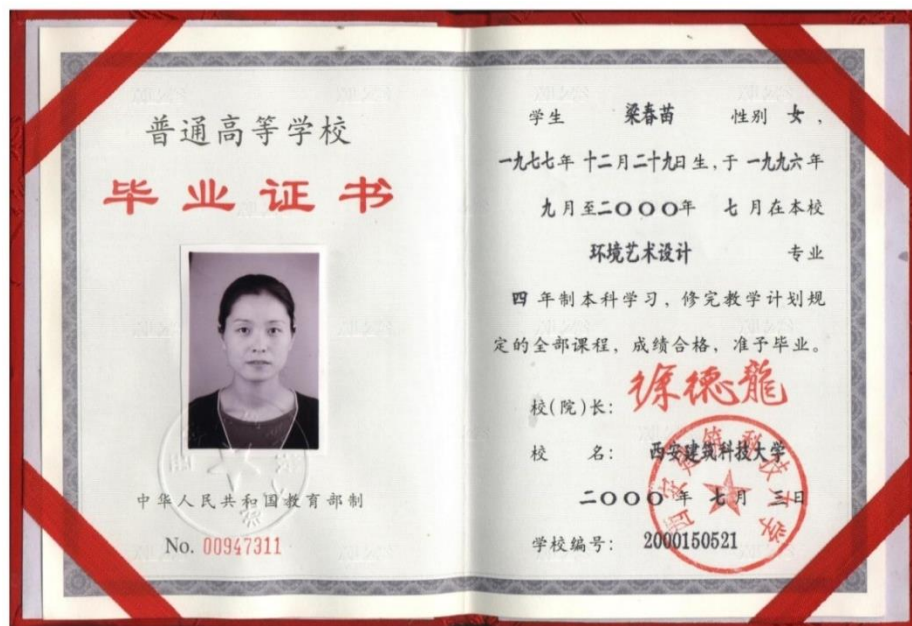 普通高等学校
毕业证书
中华人民共和国教育部制
No. 00947311
学生 梁春苗 性别 女，
一九七七年 十二月二十九日生，于 一九九六年
九月至二〇〇〇年 七月在本校
环境艺术设计 专业
四 年制本科学习，修完教学计划规
定的全部课程，成绩合格，准予毕业。
校(院)长： 徐德龍
校 名： 西安建筑科技大学
二〇〇〇 年 七月 三日
学校编号： 2000150521
西安建筑科技大学